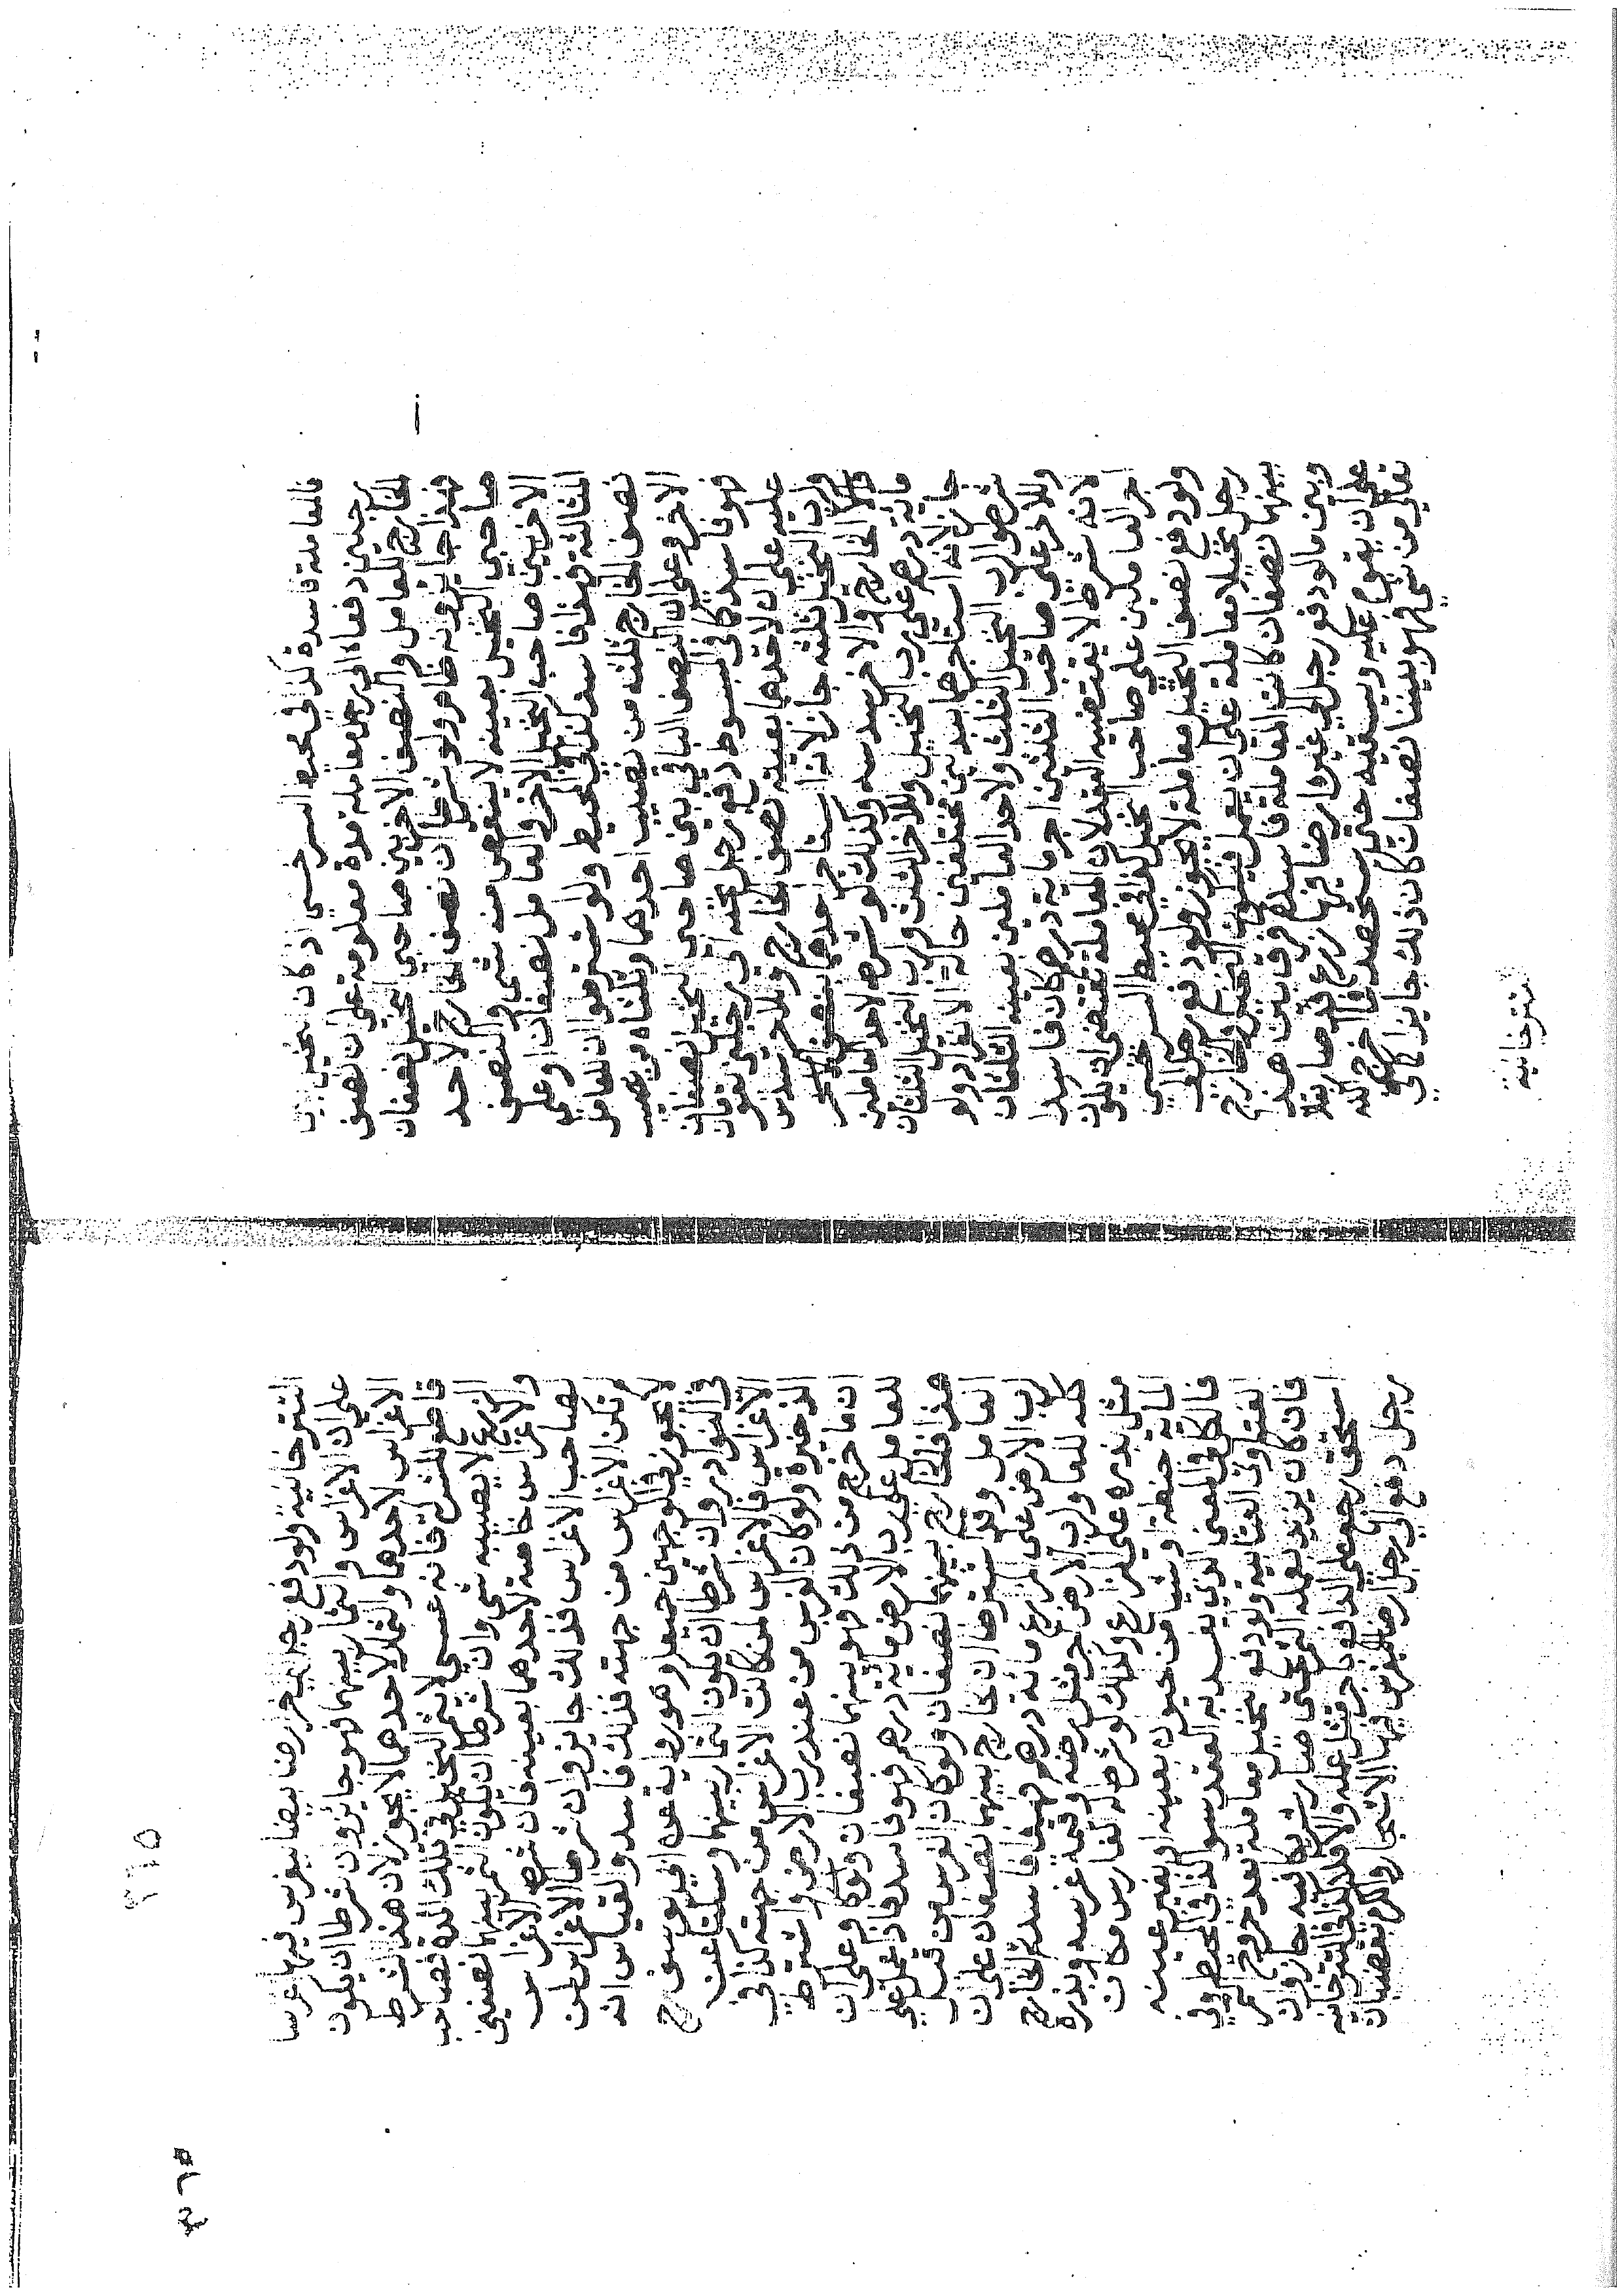 فالمعاملة فاسدة كذا في محيط السرخسي اذ كان نخيل بين
رجلين دفعاه الى رجل معاملة مدة معلومة على ان نصف
الخارج للعامل والنصف الاخر بين صاحبي النخيل نصفان
فهذا جايز وانه ظاهر ولو شرطا ان نصف الخارج لاحد
صاحبي النخيل بعينه لا ينقص منه شي والنصف
الاخر بين صاحب النخيل الاخر والعامل نصفان او على
الثالثة فهذا فاسد كذا في المحيط ولو اشترطوا ان للعامل
نصف الخارج ثلثه من نصيب احدهما وثلثاه من نصيب
الاخر وعلى ان النصف الباقي بين صاحبي النخيل نصفان
فهو فاسد كذا في المبسوط دفع رجل نخله الى رجلين يقومان
عليه على ان لاحدهما بعينه نصف الخارج وللاخر سدس
ولرب النخيل ثلثه جاز لانه استاجر احدهما بنصف الخارج
والاخر بسدسه وكذلك لو شرط لاحد العاملين
مائة درهم على رب النخيل وللاخر الثلث ولرب النخيل الثلثان
جاز لانه استاجرهما ببدلين مختلفين حالة الانفراد ولو
شرطوا لرب النخيل الثلث ولاحد العاملين بعينه الثلثان
وللاخر على صاحب الثلثين اجر مائة درهم كان فاسدا
لانه شرط لا يقتضيه العقد لان المعاملة تقتضي ان يكون
اجر العاملين على صاحب النخيل كذا في محيط السرخسي
ولو دفع نصف النخيل معاملة لا يجوز ولو دفع رجل الى
رجل نخيلا معاملة على ان يعمل فيكون النخيل والخارج
بينهما نصفان كانت المعاملة فاسدة فرق بين هذا
وبين ما لو دفع رجل الى غيره ارضا فيها زرع قد صار بقلا
على ان يقوم عليه ويسقيه حتى يستحصد فما اخرج الله
تعالى من شي فهو بيننا نصفان كان ذلك جايزا كذا في
التترخانية
التترخانية ولو دفع رجل الى اخر ارضا بيضا ليغرس فيها غرسا
على ان الاغراس والثمار بينهما فهو جايز وان شرطا ان يكون
الاغراس لاحدهما والثمر لاحدهما لا يجوز لان هذا الشرط
قاطع للشركة فانه عسى لا يثمر النخيل في تلك المدة فصاحب
الزرع لا يصيبه شي وان شرطا ان يكون الثمر بينهما نصفين
والاغراس خاصة لاحدهما بعينه فان شرط الاغراس
لصاحب الاغراس فذلك جايز وان شرطا الاغراس لمن
لم تكن الاغراس من جهته فذلك فاسد والقياس انه
لا يجوز في الوجهين جميعا وهو رواية عن ابي يوسف رح
في النوادر وان شرطا ان يكون الثمار بينهما وسكتا عن
الاغراس فالاغراس لمن كانت الاغراس من جهته كذا في
الذخيرة ولو كان الغرس من عند رب الارض واشترط
ان ما خرج من ذلك فهو بينهما نصفان وعلى ان
للعامل على رب الارض مائة درهم فهو فاسد فاذا عمل على
هذا فالخارج بينهما نصفان ولو كان الغرس من قبل
العامل وقد اشترطا ان الخارج بينهما نصفان على ان
لرب الارض على المزارع مائة درهم فهو فاسد ثم الخارج
كله للعامل ولرب الارض اجر مثل ارضه وقيمة غرسه وبذره
مثل بذره على المزارع وكذلك لو شرط له الغارس مكان
المائة حنطة او شيا من حيوان بعينه او بغير عينه
فالكل في المعنى الذي يفسد به العقد سوا كذا في المبسوط وفي
الفتاوى العتابية ولو دفع نخيل معاملة بعد خروج الثمر
فان كان يزيد بعمله الثمر حتى صار شريكا فيه جاز وان
استحق رجع على الدافع باجر مثل عمله والا فلا كذا في التترخانية
رجل دفع الى رجل ارضا ليغرس فيها الاشجار والكرم بقضبان
٣٦٥
٣٦٥